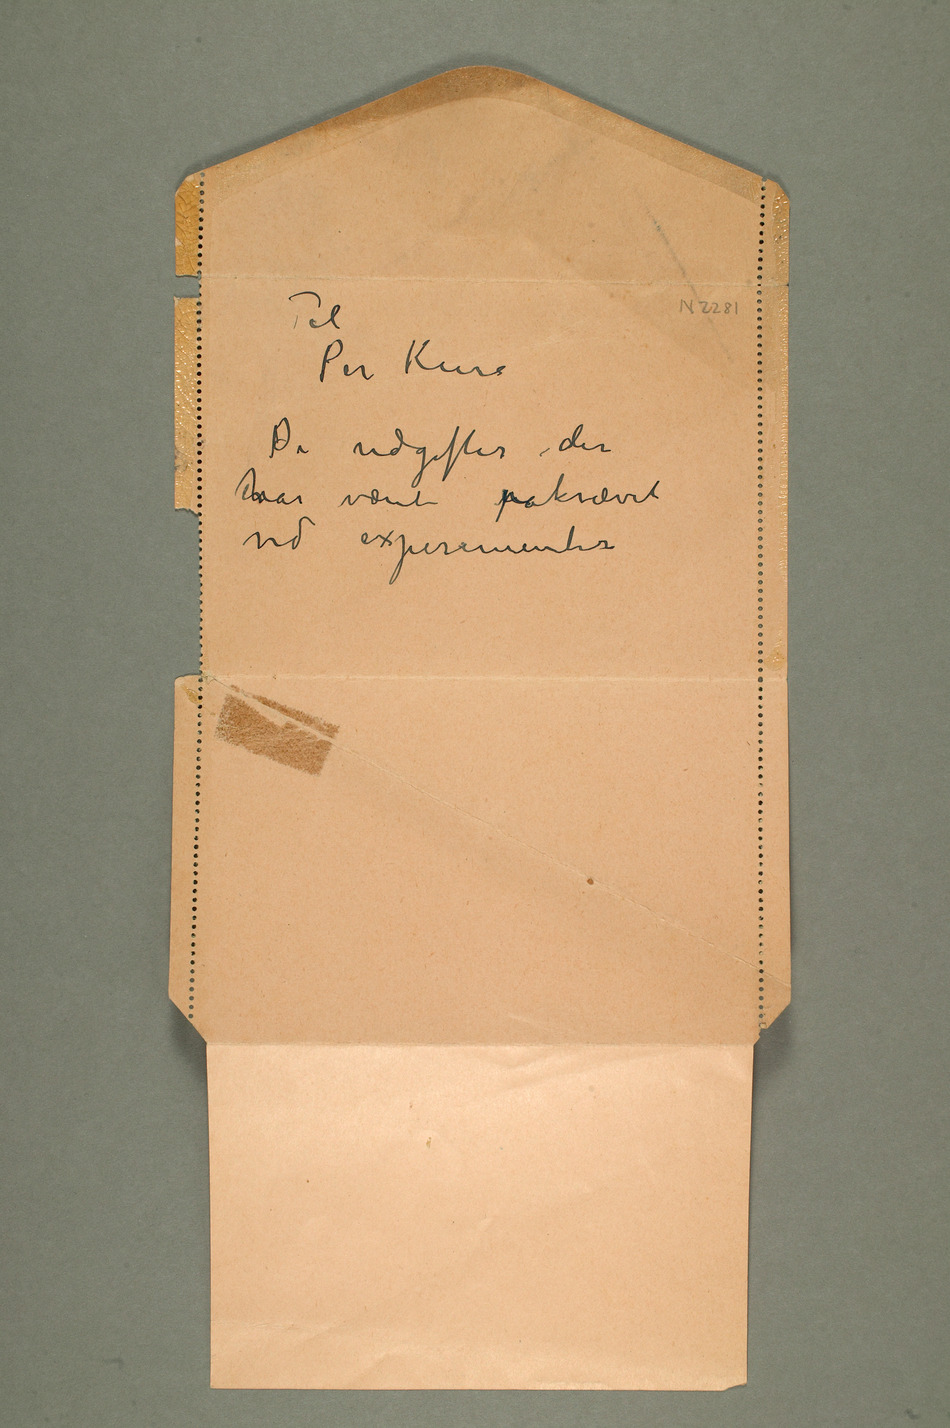 N 2281
Til
Per Kura
De udgifter der
har vært påkrævet
ved experimenter